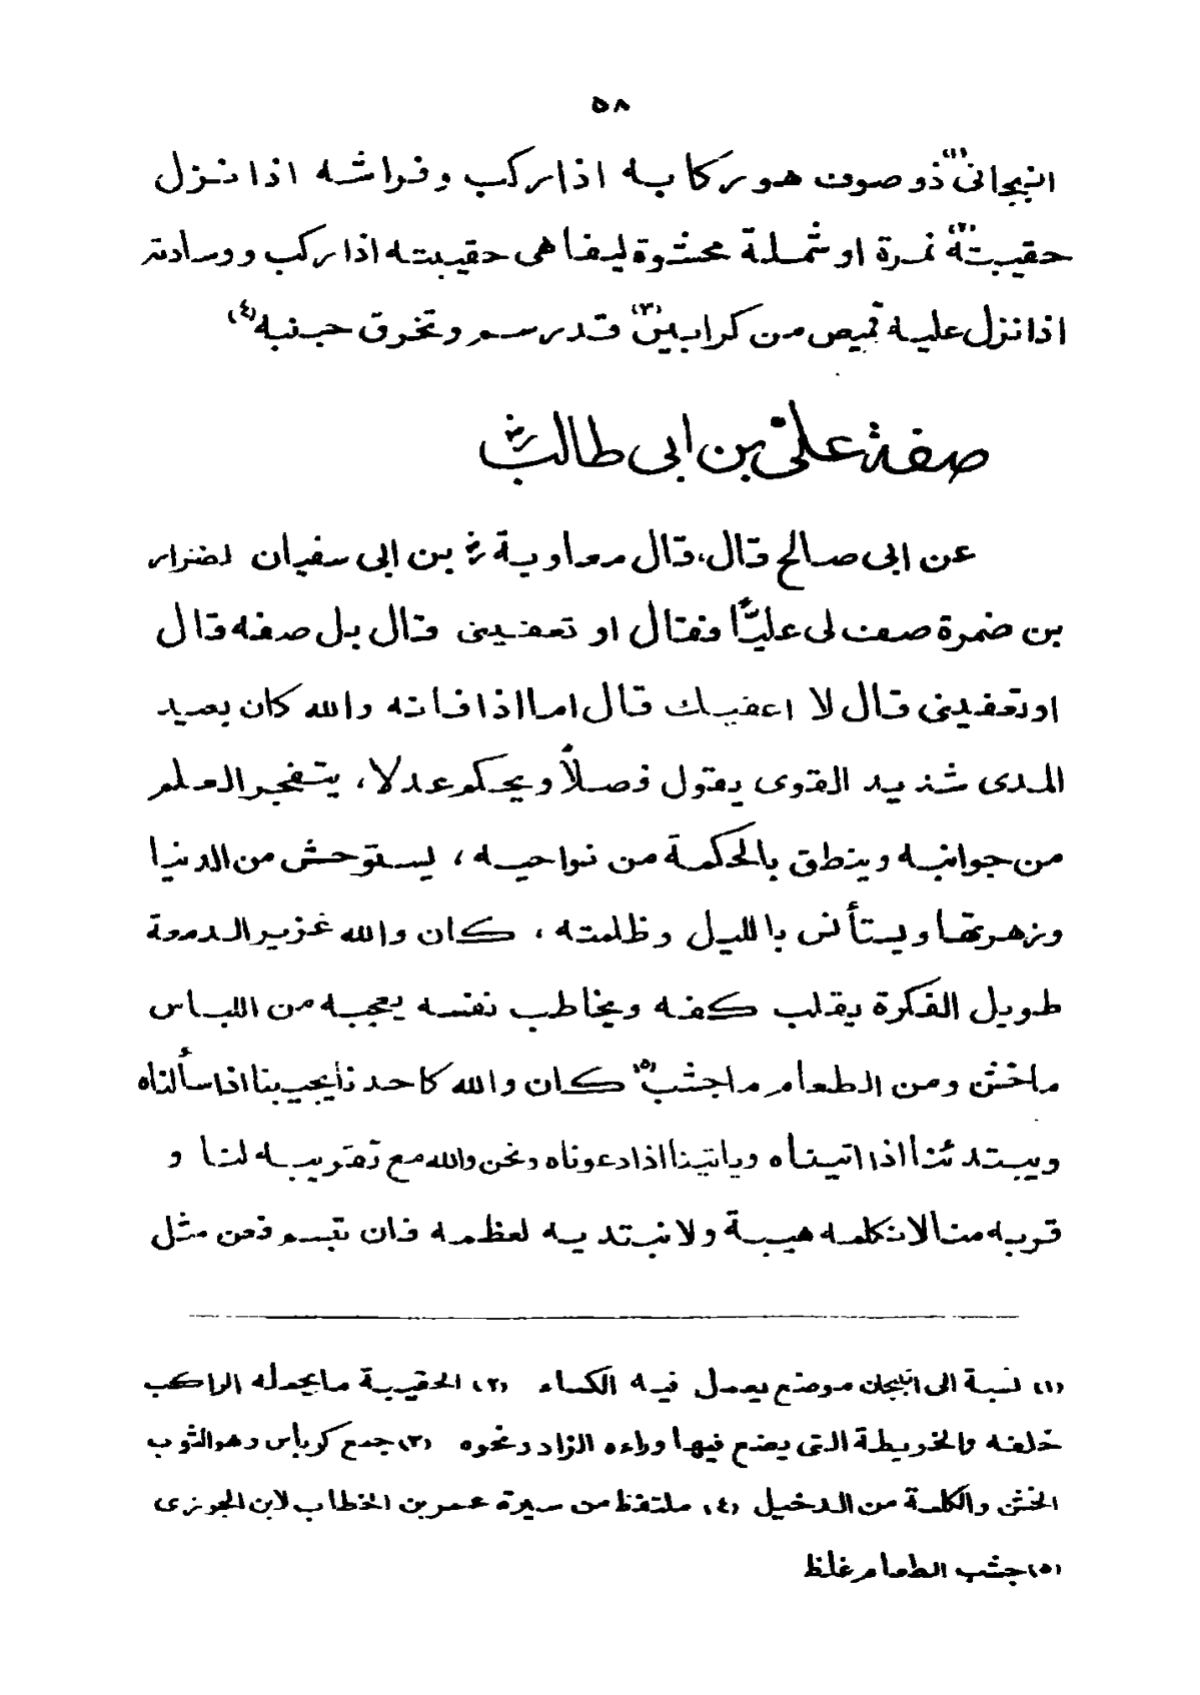 ٥٨
انبجانى(١) ذو صوف هو ركابه اذا ركب وفراشه اذا نزل
حقيبته(٢) نمرة او شملة محشوة ليفا هى حقيبته اذا ركب ووسادته
اذا نزل عليه قميص من كرابيس(٣) قد رسم وتخرق جنبه(٤)
صفة علىّ بن ابى طالبؓ
عن ابى صالح قال، قال معاويةؓ بن ابى سفيان لضرار
بن ضمرة صف لى عليًّا فقال او تعفينى قال بل صفه قال
او تعفينى قال لا اعفيك قال اما اذا فانه والله كان بعيد
المدى شديد القوى يقول فصلاً ويحكم عدلا، يتفجر العلم
من جوانبه وينطق بالحكمة من نواحيه، ليستوحش من الدنيا
وزهرتها ويستأنس بالليل وظلمته، كان والله غزير الدمعة
طويل الفكرة يقلب كفه ويخاطب نفسه يعجبه من اللباس
ما خشن ومن الطعام ما جشب(٥) كان والله كاحدنا يجيبنا اذا سألناه
ويبتدئنا اذا اتيناه وياتينا اذا دعوناه ونحن والله مع تقريبه لنا و
قربه منا لا نكلمه هيبة ولا نبتديه لعظمه فان تبسم فعن مثل
(١) نسبة الى انبجان موضع يعمل فيه الكساء (٢) الحقيبة ما يحمله الراكب
خلفه والخريطة التى يضع فيها وراءه الزاد ونحوه (٣) جمع كرباس وهو الثوب
الخشن والكلمة من الدخيل (٤) ملتقط من سيرة عمر بن الخطاب لابن الجوزى
(٥) جشب الطعام غلظ